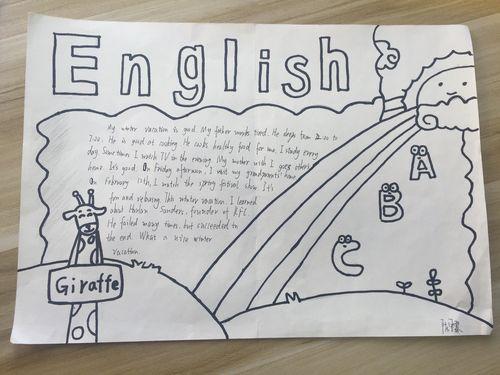 English
My winter vacation is good. My father works hard. He sleeps from 2:00 to
7:00. He is good at cooking. He cooks healthy food for me. I study every
day. Sometimes I watch TV in the evening. My mother with I goes
home. It's good. On Friday afternoon. I visit my grandparents' home.
On February 12th, I watch the spring festival show. It's
fun and relaxing. This winter vacation. I learned
about Harlan Sanders, founder of KFC.
He failed many times, but succeeded in
the end. What a nice winter
vacation.
A
B
C
Giraffe